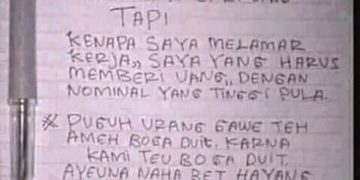 TAPI
KENAPA SAYA MELAMAR
KERJA,, SAYA YANG HARUS
MEMBERI UANG,, DENGAN
NOMINAL YANG TINGGI PULA.
* PUGUH URANG GAWE TEH
AMEH BOGA DUIT. KARNA
KAMI TEU BOGA DUIT.
AYEUNA NAHA BET HAYANG